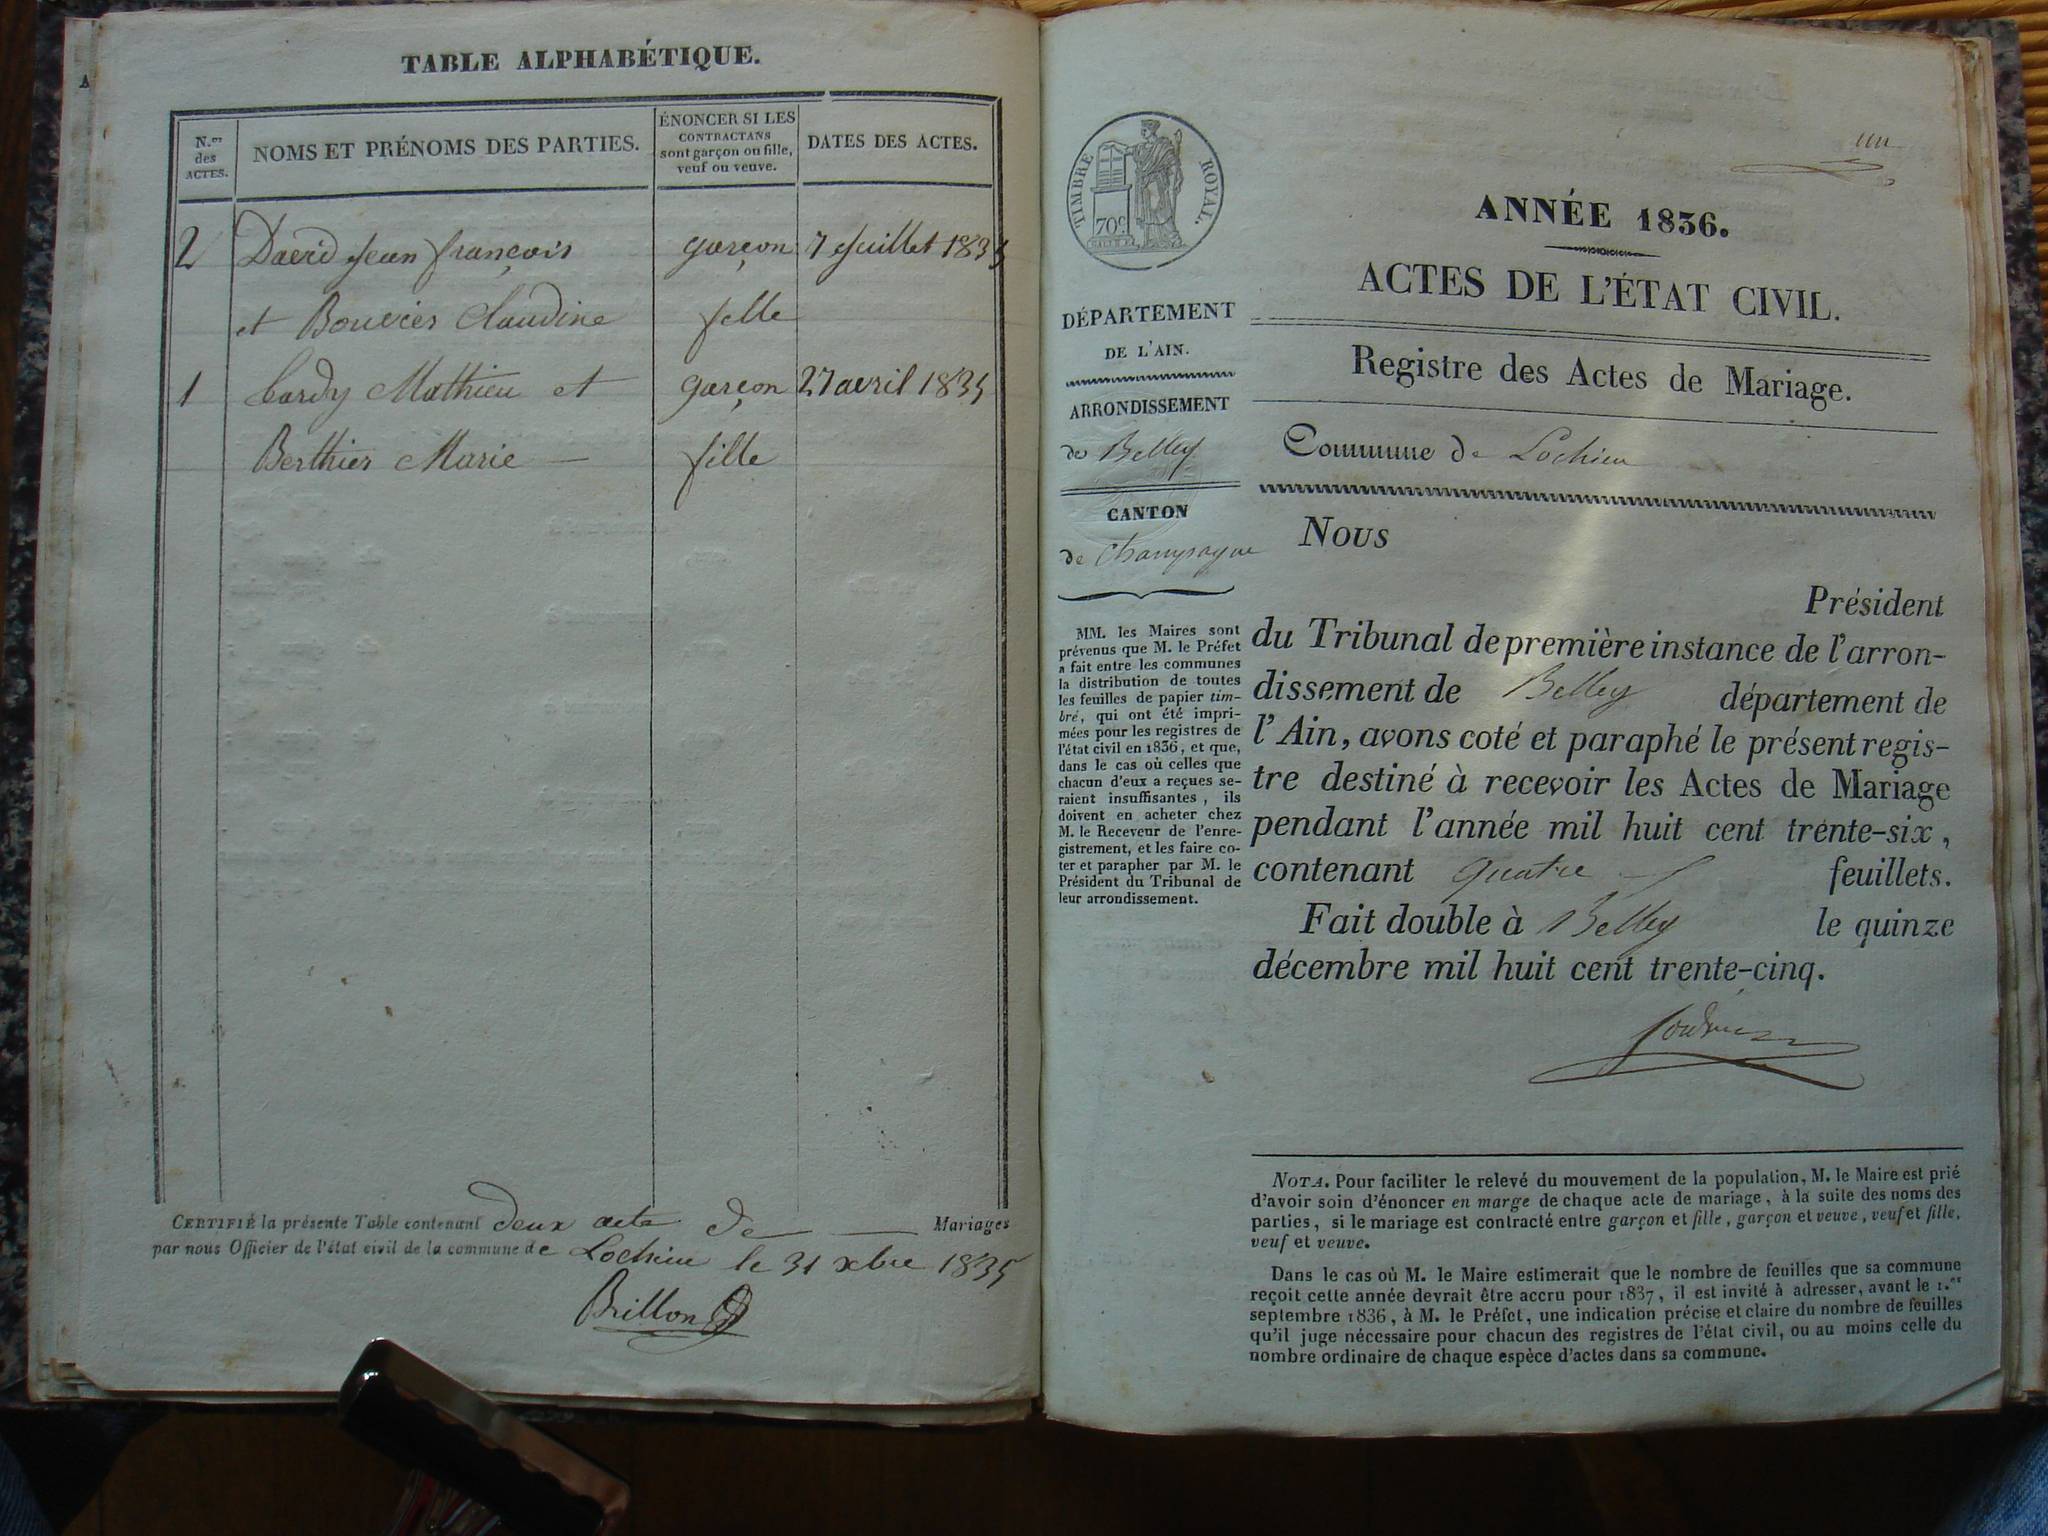 TABLE ALPHABÉTIQUE.
N.os des ACTES.
NOMS ET PRÉNOMS DES PARTIES.
ÉNONCER SI LES
CONTRACTANS
sont garçon ou fille,
veuf ou veuve.
DATES DES ACTES.
2 David Jean françois garçon 7 Juillet 1835
et Bouvier Claudine fille
1 Cardy Mathieu et garçon 27 avril 1835
Berthier Marie — fille
CERTIFIÉ la présente Table contenant deux acte de Mariages
par nous Officier de l'état civil de la commune de Lochieu le 31 xbre 1835
Brillon
un
TIMBRE ROYAL.
70c
ANNÉE 1836.
ACTES DE L'ÉTAT CIVIL.
Registre des Actes de Mariage.
Commune de Lochieu
DÉPARTEMENT
DE L'AIN.
ARRONDISSEMENT
de Belley
CANTON
de Champagne
MM. les Maires sont
prévenus que M. le Préfet
a fait entre les communes
la distribution de toutes
les feuilles de papier tim-
bré, qui ont été impri-
mées pour les registres de
l'état civil en 1836, et que,
dans le cas où celles que
chacun d'eux a reçues se-
raient insuffisantes, ils
doivent en acheter chez
M. le Receveur de l'enre-
gistrement, et les faire co-
ter et parapher par M. le
Président du Tribunal de
leur arrondissement.
Nous
Président
du Tribunal de première instance de l'arron-
dissement de Belley département de
l'Ain, avons coté et paraphé le présent regis-
tre destiné à recevoir les Actes de Mariage
pendant l'année mil huit cent trente-six,
contenant quatre feuillets.
Fait double à Belley le quinze
décembre mil huit cent trente-cinq.
NOTA. Pour faciliter le relevé du mouvement de la population, M. le Maire est prié
d'avoir soin d'énoncer en marge de chaque acte de mariage, à la suite des noms des
parties, si le mariage est contracté entre garçon et fille, garçon et veuve, veuf et fille,
veuf et veuve.
Dans le cas où M. le Maire estimerait que le nombre de feuilles que sa commune
reçoit cette année devrait être accru pour 1837, il est invité à adresser, avant le 1.er
septembre 1836, à M. le Préfet, une indication précise et claire du nombre de feuilles
qu'il juge nécessaire pour chacun des registres de l'état civil, ou au moins celle du
nombre ordinaire de chaque espèce d'actes dans sa commune.